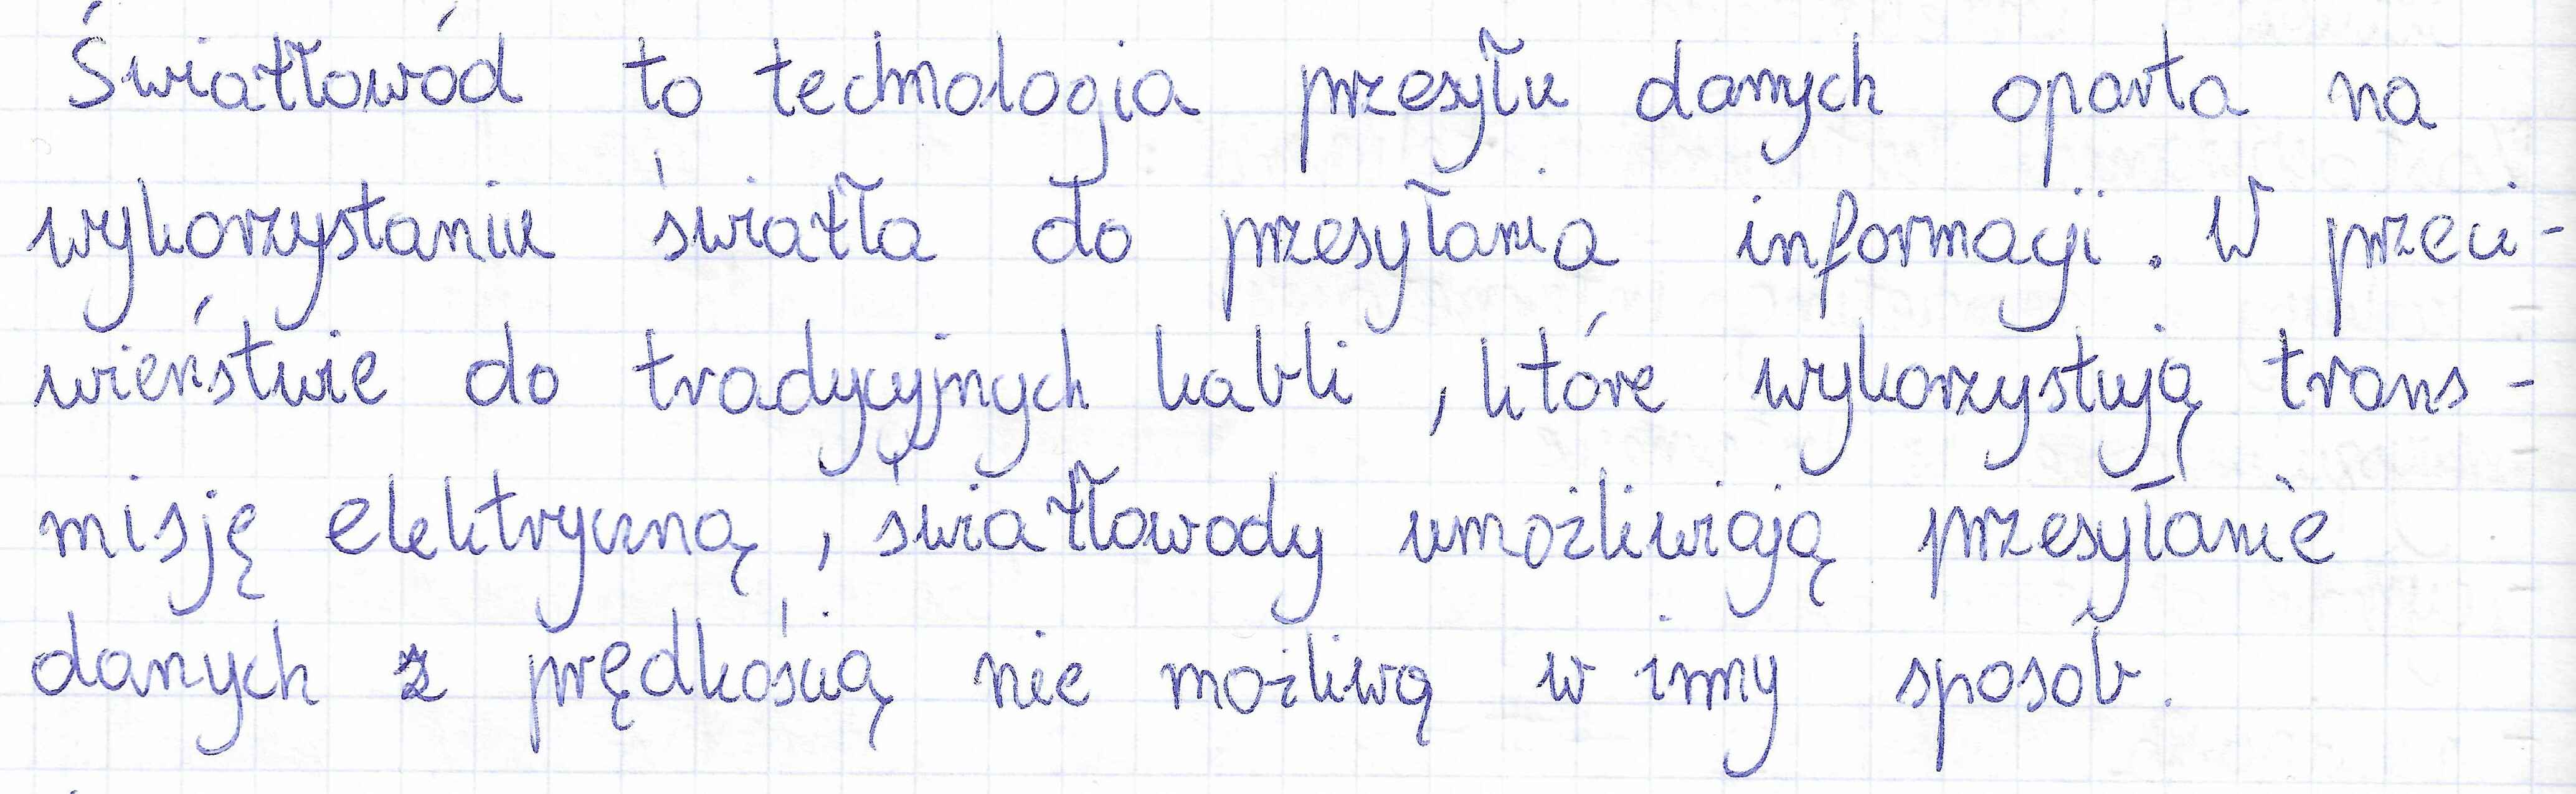 Światłowód to technologia przesyłu danych oparta na
wykorzystaniu światła do przesyłania informacji. W przeci-
wieństwie do tradycyjnych kabli, które wykorzystują trans-
misję elektryczną, światłowody umożliwiają przesyłanie
danych z prędkością nie możliwą w inny sposób.